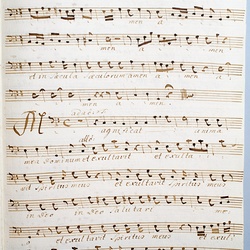 men a
men a
et in secula seculorum amen a
men a men
adagio
Magnificat anima
allo
mea Dominum et exultavit et exulta
vit Spiritus meus et exultavit Spiritus meus
in Deo in Deo salutari me
et exultavit Spiritus meus